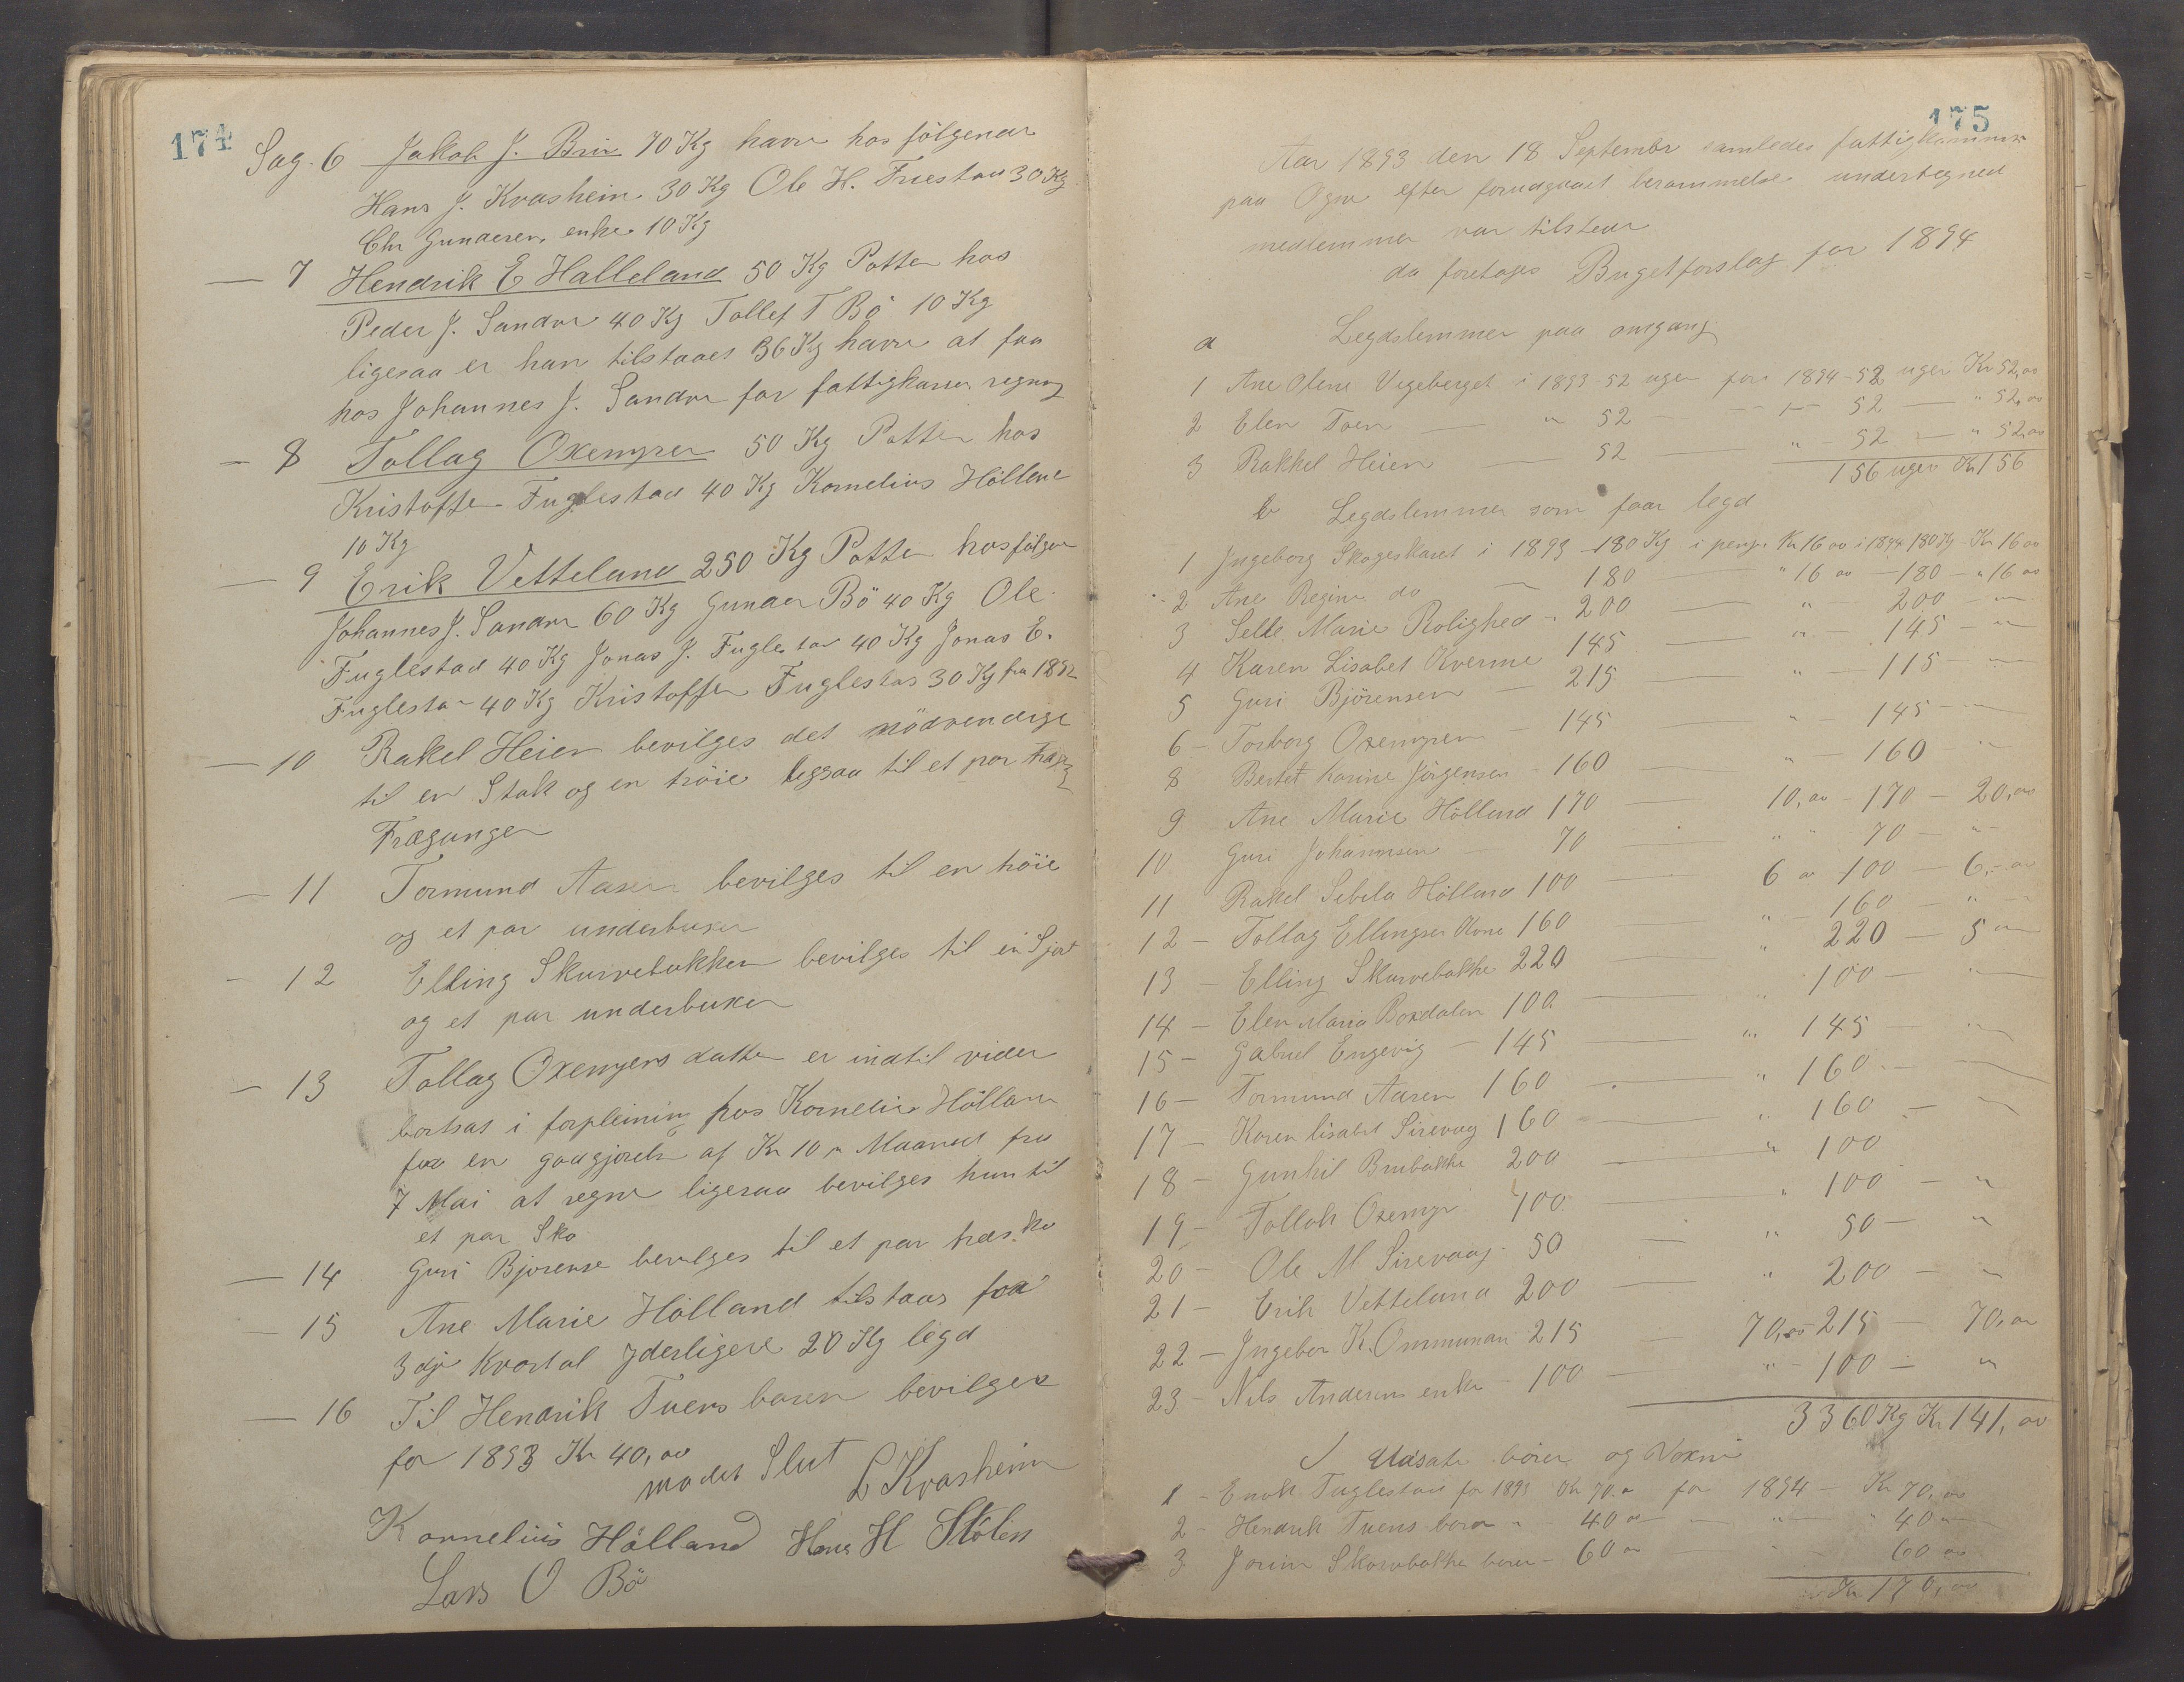 174
Sag. 6 Jakob J. Bru 70 Kg havre hos følgende
Hans J. Kvashein. 30 Kg Ole H. Fuestad 30 Kg
Chr Gundersen enke 10 Kg
— 7 Hendrik E Halleland 50 Kg Potter hos
Peder J. Sandve 40 Kg Tollef T Bö 10 Kg
ligesaa er han tilstaaet 36 Kg havre at faa
hos Johannes J. Sandve for fattigkassens regning
— 8 Tollag Oxemyren 50 Kg Potter hos
Kristoffer Fuglestad 40 Kg Kornelius Hölland
10 Kg
— 9 Erik Vetteland 250 Kg Potter hos følgen
Johannes J. Sandve 60 Kg Gunder Bö 40 Kg Ole
Fuglestad 40 Kg Jonas J. Fuglestad 40 Kg Jonas E.
Fuglestad 40 Kg Kristoffer Fuglestad 30 Kg fra 1892
— 10 Rakel Heien bevilges det nödvendige
til en Stak og en tröie ligesaa til et par
Træganger
— 11 Tormund Aasen bevilges til en tröie
og et par underbuxer
— 12 Elling Skurvebakken bevilges til en Sjort
og et par underbuxer
— 13 Tollag Oxemyers datter er indtil vider
bortsat i forpleining hos Kornelius Hölland
for en godgjörelse af Kr 10 pr Maaned fra
7 Mai at regne ligesaa bevilges hun til
et par Sko
— 14 Guri Bjorense bevilges til et par træsko
— 15 Ane Marie Hölland tilstaaes for
3dje Kvartal yderligere 20 Kg legd
— 16 Til Hendrik Tuens baren bevilges
for 1893 Kr 40,00
mødet Slut L Kvasheim
Kornelius Hölland Hans H Stölen
Lars O Bö
175
Aar 1893 den 18 September samledes fattigkommis
paa Ogne efter forudgaaet berammelse undertegnede
medlemmer var tilstede
da foretoges Bugetforslag for 1894
a Legdslemmer paa omgang
1 Ane Olene Vegeberget i 1893 52 uger for 1894 - 52 uger Kr 52,00
2 Elen Toen — " 52 — — 52 — " 52,00
3 Rakkel Heien — 52 — " - 52 — " 52,00
156 uger Kr 156
b Legdslemmer som faar legd
1 Ingeborg Skogeskaret i 1893 - 180 Kg i penge Kr 16 00 i 1894 180 Kg - Kr 16 00
2 Ane Regine do — 180 — " 16 00 — 180 - " 16 00
3 Selle Marie Rolighed - 200 — " — 200 — "
4 Karen Lisabet Kverme 145 — " — 145 — "
5 Guri Björensen — 215 — " — 115 — "
6 - Torborg Oxemyren — 145 — " — 145 — "
8 Bertet Karine Jörgensen - 160 — " — 160 "
9 Ane Marie Hölland 170 — 10,00 - 170 — 20,00
10 Guri Johannsen — 70 — " " 70 — "
11 Rakel Sibila Hölland 100 — 6 00 100 — 6,00
12 - Tollag Ellingsen Kone 160 — " — 160 — "
13 - Elling Skurvebakke 220 — " 220 — 5 00
14 - Elen Maria Boxdalen 100 — " 100 — "
15 - Gabriel Engevig — 145 — " 145 — "
16 - Tormund Aasen 160 — " 160 — "
17 - Karen lisabet Sirevaag 160 — " 160 — "
18 - Gunhil Brubakke 200 — " 100
19 - Tollak Oxemyr 100 — " 100 — "
20 - Ole M Sirevaag 50 — " 50 — "
21 - Erik Vetteland 200 — " 200 — "
22 - Ingebor K. Ommundsen 215 — 70,00 215 — 70,00
23 - Nils Andersens enke - 100 — " - 100 — "
3360 Kg Kr 141,00
Udsatte börn og Voxne
1 - Enok Fuglestad for 1893 Kr 70.00 for 1894 - Kr 70,00
2 - Hendrik Tuens born - 40 00 — " — " 40 00
3 Jorine Skurvebakke boren - 60 00 — 60 00
Kr 170,00